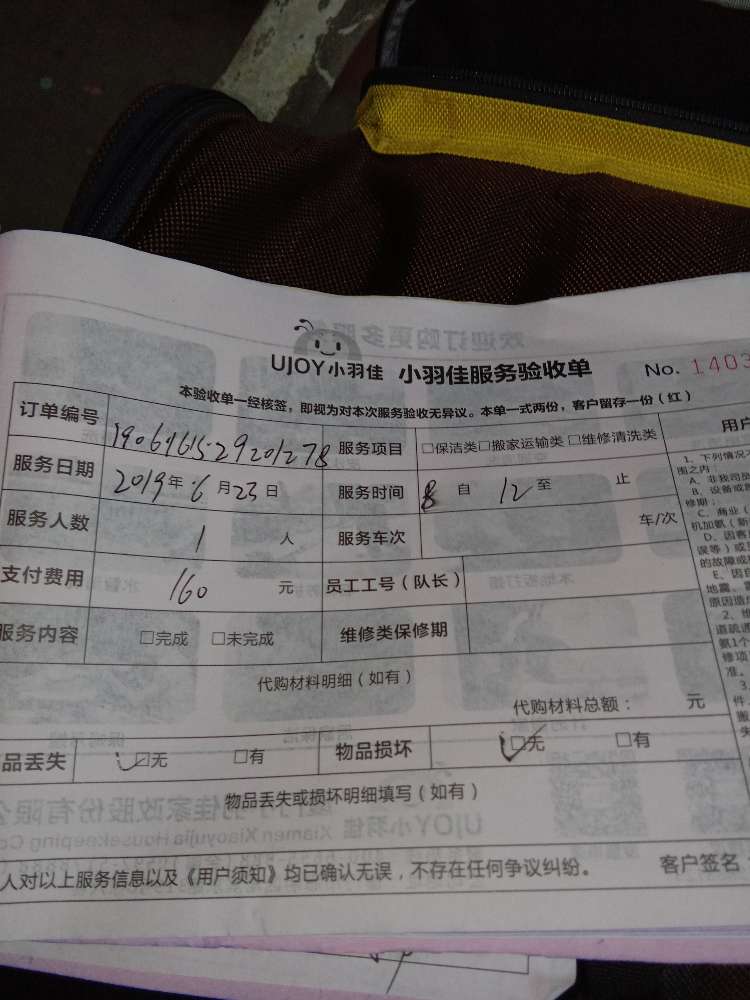 UJOY小羽佳 小羽佳服务验收单 No. 1403
本验收单一经核签，即视为对本次服务验收无异议。本单一式两份，客户留存一份（红）
订单编号 服务项目 □保洁类□搬家运输类□维修清洗类
服务日期 2019年6月23日 服务时间 8自 12至 止
服务人数 1 人 服务车次 车/次
支付费用 160 元 员工工号（队长）
服务内容 □完成 □未完成 维修类保修期
代购材料明细（如有）
代购材料总额： 元
品丢失 ✓□无 □有 物品损坏 ✓□无 □有
物品丢失或损坏明细填写（如有）
人对以上服务信息以及《用户须知》均已确认无误，不存在任何争议纠纷。 客户签名
用户
1、下列情况
围之内：
A、非我司员
B、设备或
修期；
C、商业（
机加氨（新
D、因客
误等）或
的故障或
E、因自
地震、
原因造
道疏通
氨1个
修项
准。
3
件
搬
失